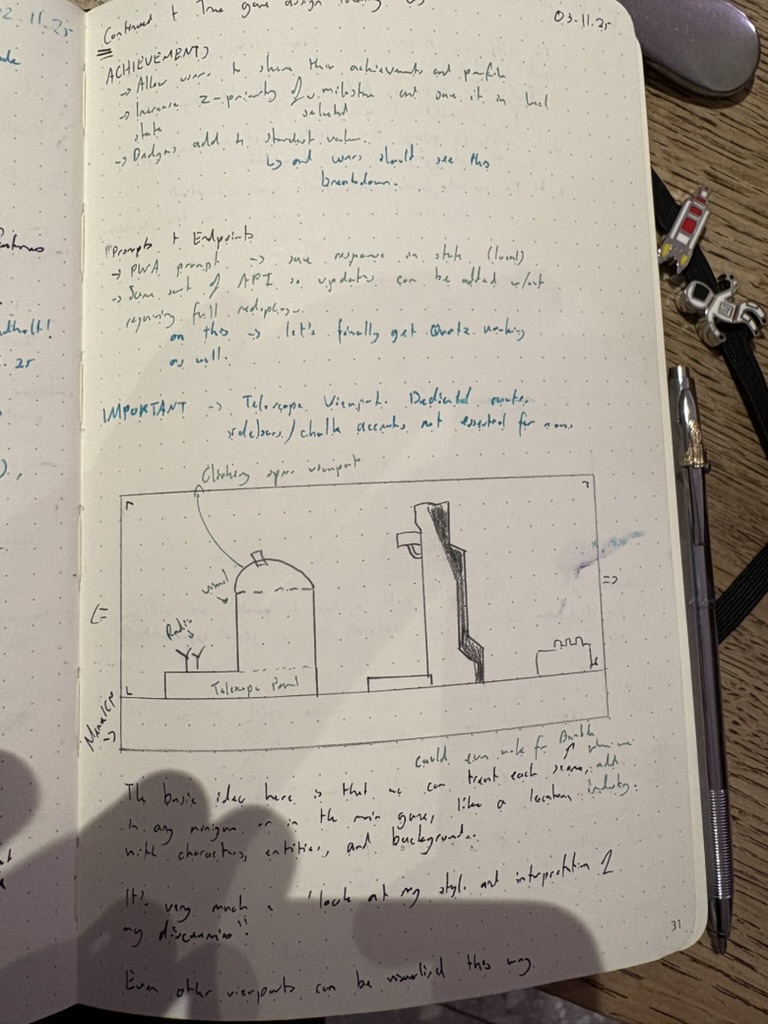 03.11.25
Continued + True game design
ACHIEVEMENTS
-> Allow users to share their achievements and profile
-> Increase z-priority of milestone and save it in local
selected
state
-> Badges add to stardust value.
↳ and users should see this
breakdown.
"Prompts + Endpoints
-> PWA prompt -> save response in state (local)
-> Some sort of API so updates can be added w/out
requiring full redeploy.
on this -> let's finally get Quartz working
as well.
IMPORTANT -> Telescope Viewport. Dedicated
sidebars/chalk accents not essential for now.
Clicking opens viewport
visual
Radio
Telescope
could even make for
The basic idea here is that we can treat each scene, add
in any minigame or in the main game, like a location, industry.
with characters, entities, and background.
It's very much a 'look at my style and interpretation of
my discoveries"!
Even other viewports can be visualised this way
31
2.11.25
25